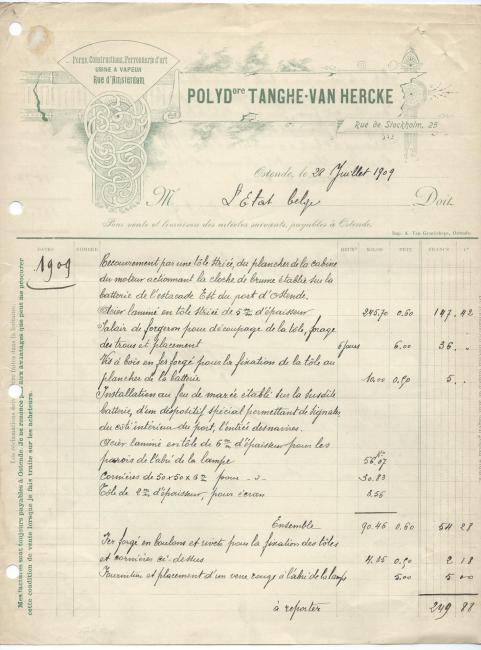 Forge, Constructions, Ferronnerie d'art
USINE A VAPEUR
Rue d'Amsterdam
POLYDore TANGHE-VAN HERCKE
Rue de Stockholm, 25
Ostende, le 28 Juillet 1909
M L'Etat belge Doit
Pour vente et livraison des articles suivants, payables à Ostende.
Imp. A. Van Ostende.
DATES NOMBRE KILOS PRIX FRANCS Cs
1909
Recouvrement par une tôle striée, du plancher de la cabine
du moteur actionnant la cloche de brume établie sur la
batterie de l'estacade Est du port d'Ostende.
Acier laminé en tôle striée de 5 m/m d'épaisseur 245.70 0.60 147.42
Salaire de forgeron pour découpage de la tôle, forage
des trous et placement 6 jours 6.00 36 ..
Vis à bois en fer forgé pour la fixation de la tôle au
plancher de la batterie 10.00 0.50 5 ..
Installation au feu de marée établi sur la susdite
batterie, d'un dispositif spécial permettant de signaler
du côté intérieur du port, l'entrée des navires.
Acier laminé en tôle de 5 m/m d'épaisseur pour les
parois de l'abri de la lampe 56.07
Cornières de 50x50x6 pour -"- 30.83
Tôle de 2 m/m d'épaisseur, pour écran 3.56
Ensemble 90.46 0.60 54 28
Fer forgé en boulons et rivets pour la fixation des tôles
et cornières ci-dessus 4.35 0.50 2 18
Fourniture et placement d'un verre rouge à l'abri de la lampe 5.00 5 00
à reporter 249 88
Mes factures sont toujours payables à Ostende. Je ne renonce pas aux avantages que peut me procurer
cette condition de vente lorsque je fais traite sur les acheteurs.
Les réclamations doivent être faites dans la huitaine.